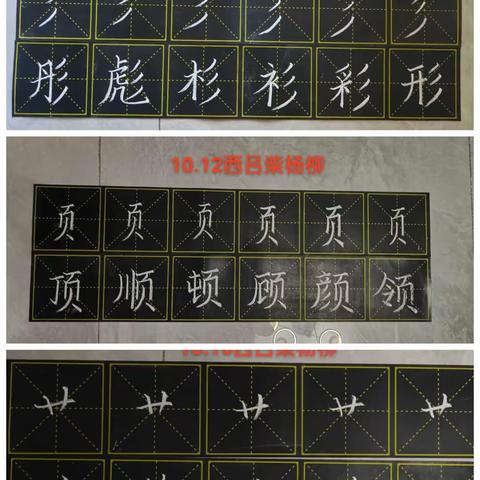 彡 彡 彡 彡 彡 彡
彤 彪 杉 衫 彩 形
10.12西吕柴杨柳
页 页 页 页 页 页
顶 顺 顿 顾 颜 领
西吕柴杨柳
艹 艹 艹 艹 艹